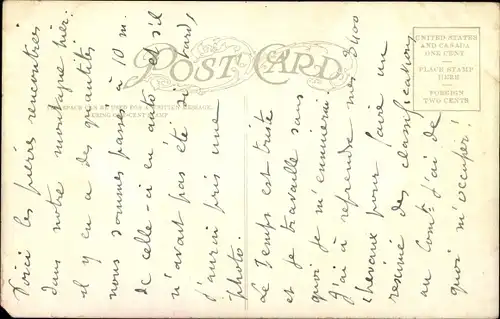 POST CARD
UNITED STATES
AND CANADA
ONE CENT
PLACE STAMP
HERE
FOREIGN
TWO CENTS
Voici les rencontrés
dans notre montagne hier.
il y en a des quantités
nous sommes passés à 10 m.
de celle-ci en auto et s'il
n'avait pas été si tard,
j'aurai pris une
photo.
Le Temps est triste
et je travaille sans
quoi je m'ennuierai
J'ai à reprendre mes 3400
chevaux pour faire un
resumé des classifications
au Comt. j'ai de
quoi m'occuper!